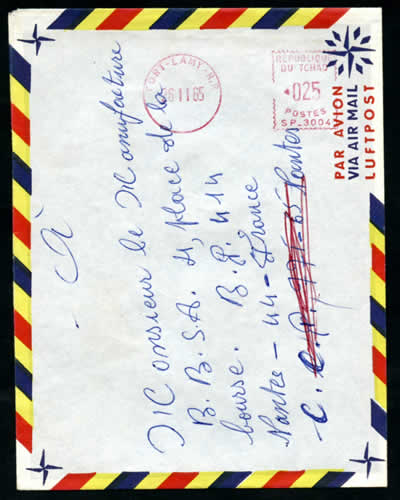 FORT-LAMY-R.P.
26 11 65
REPUBLIQUE
DU TCHAD
025
POSTES
SP.3004
PAR AVION
VIA AIR MAIL
LUFTPOST
À
Monsieur le Manufacture
B.B.S.A. 4, place de la
bourse. B.P. 414
Nantes - 44 - France
C.C.P. Nantes